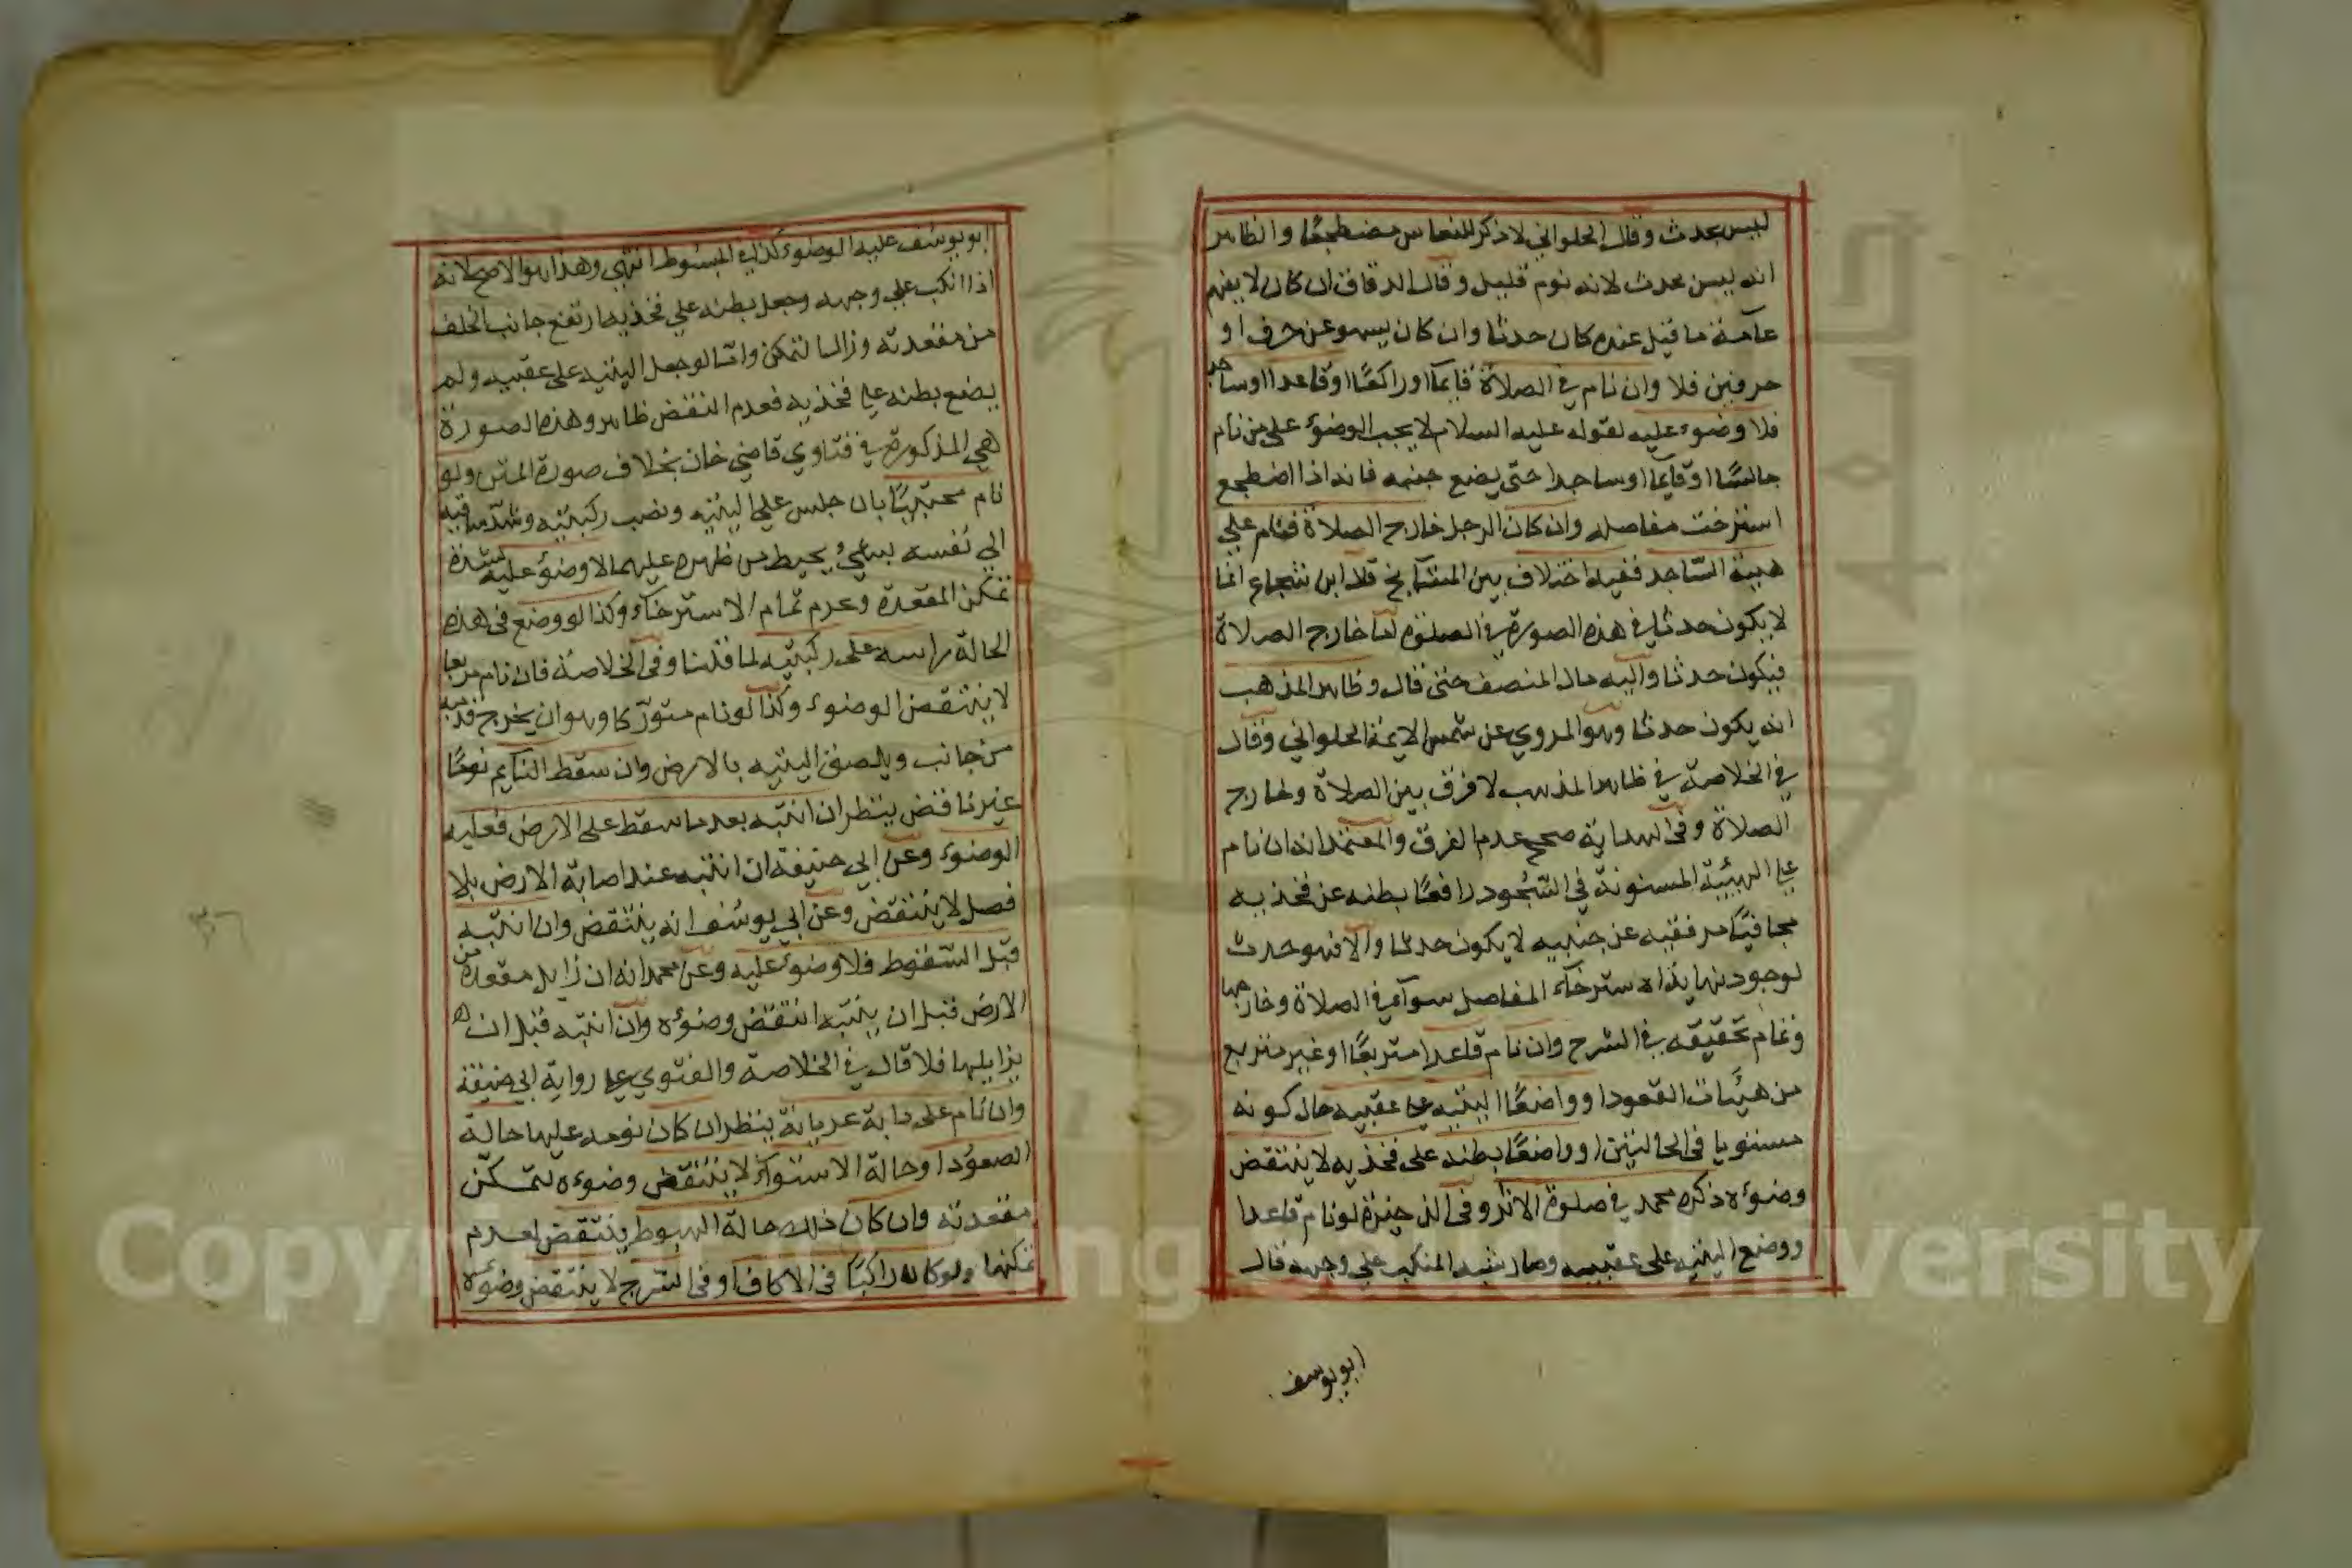 ليس بحدث وقال الحلواني لا ذكر للنعاس مضطجعًا والظاهر
انه ليس بحدث لانه نوم قليل وقال الدقاق ان كان لا يفهم
عآمة ما قيل عنده كان حدثا وان كان يسهو عن حرف او
حرفين فلا وان نام في الصلاة قايمًا او راكعًا او قاعدا او ساجد
فلا وضوء عليه لقوله عليه السلام لا يجب الوضوء على من نام
جالسًا او قايما او ساجدا حتى يضع جنبه فانه اذا اضطجع
استرخت مفاصله وان كان الرجل خارج الصلاة فنام على
هيئة الساجد ففيه اختلاف بين المشآيخ قال ابن شجاع انما
لا يكون حدثا في هذه الصورة في الصلوة اما خارج الصلاة
فيكون حدثا واليه مال المنصف حتى قال وظاهر المذهب
انه يكون حدثا وهو المروي عن شمس الايمة الحلواني وقال
في الخلاصة في ظاهر المذهب لا فرق بين الصلاة وخارج
الصلاة وفي الهداية صحح عدم الفرق والمعتمد انه ان نام
على الهيئة المسنونة في السجود رافعًا بطنه عن فخذيه
مجافيًا مرفقيه عن جنبيه لا يكون حدثا والا فهو حدث
لوجود نهاية استرخآء المفاصل سوآء في الصلاة وخارجها
وتمام تحقيقه في الشرح وان نام قاعدا متربعًا او غير متربع
من هيئات القعود او واضعًا اليتيه على عقبيه حال كونه
مستويا في الحالتين او واضعًا بطنه على فخذيه لا ينتقض
وضوءه ذكره محمد في صلوة الاثر وفي الذخيرة لو نام قاعدا
ووضع اليتيه على عقبيه وصار شبه المنكب على وجهه قال
ابو يوسف
ابو يوسف عليه الوضوء كذا في المبسوط انتهى وهذا هو الاصح لانه
اذا انكب على وجهه وجعل بطنه على فخذيه ارتفع جانب الخلف
من مقعدته وزال التمكن واما لو جعل اليتيه على عقبيه ولم
يضع بطنه على فخذيه فعدم النقض ظاهر وهذه الصورة
هي المذكورة في فتاوي قاضي خان بخلاف صورة المتن ولو
نام محتبيًا بان جلس على اليتيه ونصب ركبتيه وشد ساقيه
الى نفسه بشيء يحيط من ظهره عليهما لا وضوء عليه لشدة
تمكن المقعدة وعدم تمام الاسترخآء وكذا لو وضع في هذه
الحالة راسه على ركبتيه لما قلنا وفي الخلاصة فان نام مربعا
لا ينتقض الوضوء وكذا لو نام متورّكا وهو ان يخرج قدميه
من جانب ويلصق اليتيه بالارض وان سقط النايم نومًا
غير ناقض ينظر ان انتبه بعد ما سقط على الارض فعليه
الوضوء وعن ابي حنيفة ان انتبه عند اصابة الارض بلا
فصل لا ينتقض وعن ابي يوسف انه ينتقض وان انتبه
قبل السقوط فلا وضوء عليه وعن محمد انه ان زايل مقعده من
الارض قبل ان ينتبه انتقض وضوءه وان انتبه قبل ان
يزايلها فلا قال في الخلاصة والفتوى على رواية ابي حنيفة
وان نام على دابة عريانة ينظر ان كان نومه عليها حالة
الصعود او حالة الاستوآء لا ينتقض وضوءه لتمكن
مقعدته وان كان ذلك حالة الهبوط ينتقض لعدم
تمكنها ولو كان راكبًا في الاكاف او في السرج لا ينتقض وضوءه
٣٦
Copyright © King Saud University